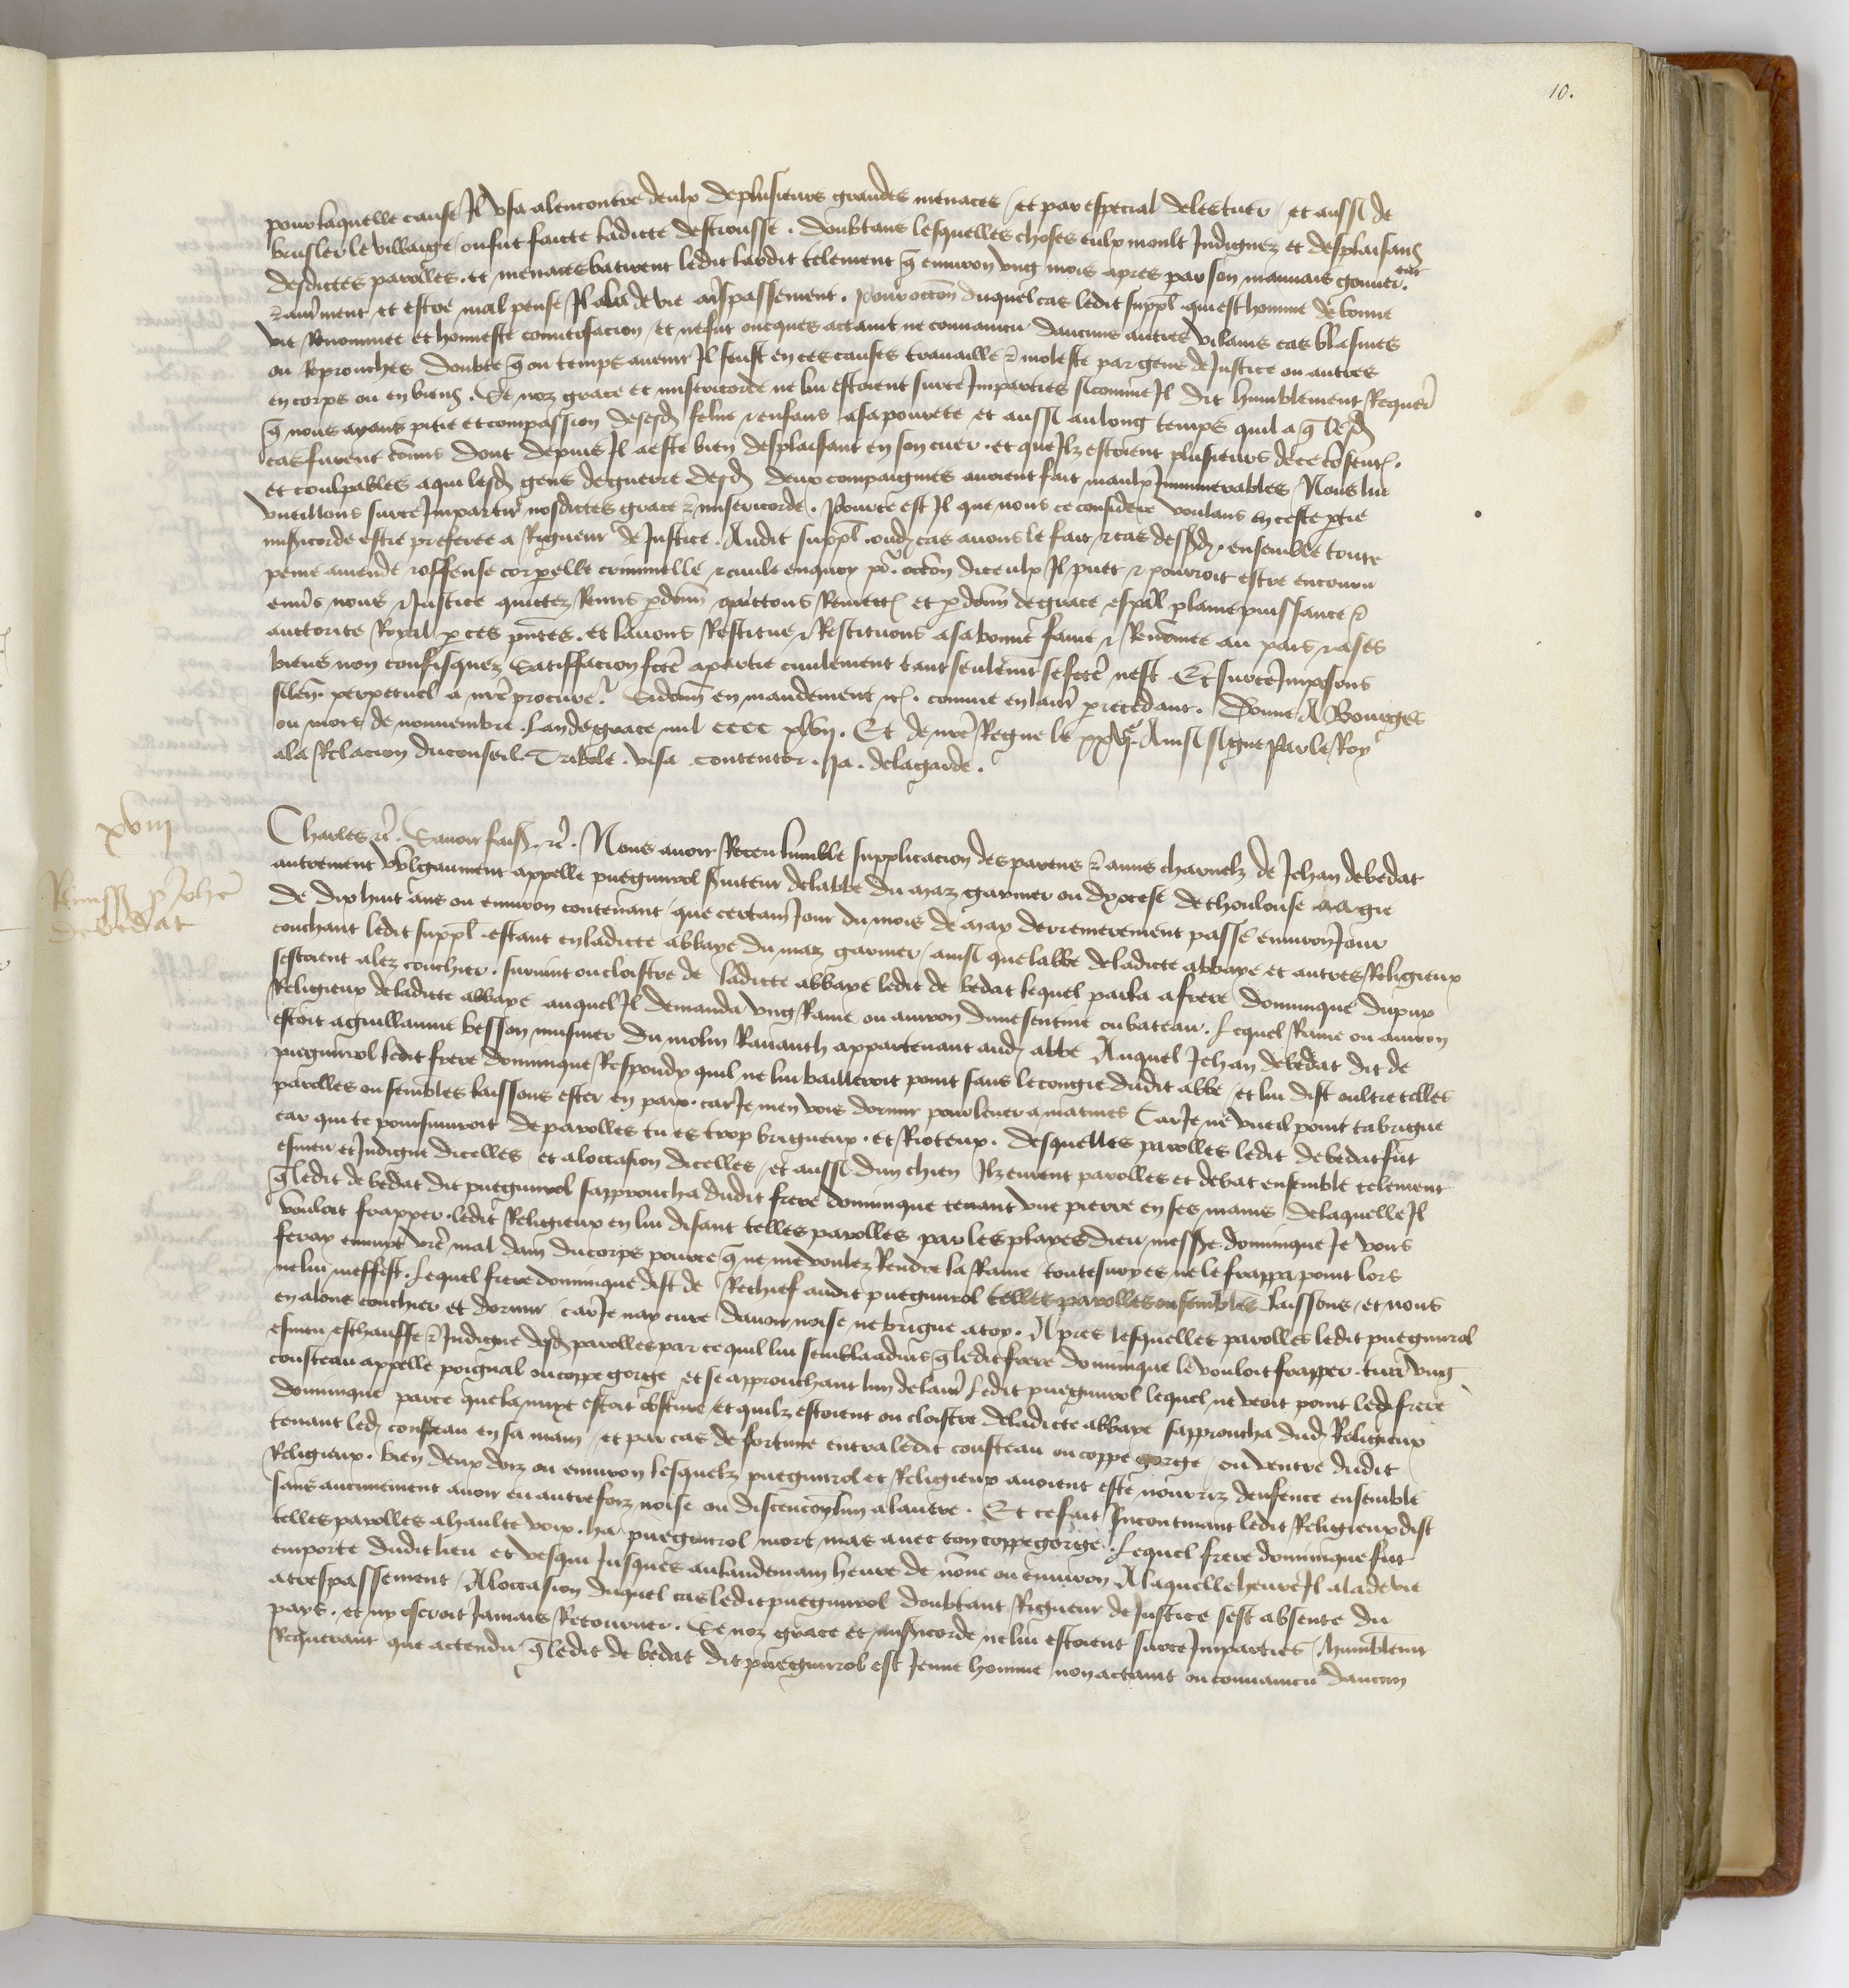 10.
pour laquelle cause Il usa alencontre deulx de plusieurs grandes menaces / et par especial deles tuer / et aussi de
brusler le villaige / ou fut faicte ladicte destrousse . doubtans lesquelles choses eulx moult Indignez et desplaisans
desdictes parolles . et menaces batirent ledit lardit telement q̃ environ ung mois apres par son mauvais gouver.ent
et estre mal pense Il ala de vie a trespassement . pour occon duquel cas ledit suppl̃ . qui est homme de bonne
vie Renommee et honneste conversacion / et ne fut oncques actaint ne convaincu daucuns autres vilains cas blasmes
ou Reprouches doubte q̃ ou temps avenir Il feust en ces causes travaille & moleste par gens de Justice ou autres
en corps ou en biens . Se noz grace et misericorde ne lui estoient sur ce Imparties sicomme Il dit humblement Requer̃
q̃ nous ayans pitie et compassion desesd̃ femme & enfans asa povrete et aussi au long temps quil a q̃ lesd̃
cas furent comis dont depuis Il a este bien desplaisant en son cuer . et que Ilz estoient plusieurs de ce consent̃ .
et coulpables a qui lesd̃ gens de guerre desd̃ deux compaignies avoient fait maulx Innumerables / Nous lui
vueillons sur ce Impartir nosdictes grace & misericorde . Pource est Il que nous ce considere voulans en ceste p̃tie
miscorde estre preferee a Rigueur de Justice . Audit suppl̃ . oud̃ cas avons le fait & cas dessusd̃ . ensemble toute
peine amende & offense corpelle criminelle & civile enquoy po̾ . occon diceulx Il puet & pourroit estre encouru
env̾s nous & Justice quictez Remis p̃donn̄ quictons Remect̃ et p̃donn̄ de grace esp̄al plaine puissance &
auctorite Royal p̃ ces pñtes . et lavons Restitue & Restituons a sa bonne fame & Renõmee au pais & a ses
biens non confisquez Satiffacion fcẽ a partie civilement tant seulem̃t se fcẽ nest . Et sur ce Imposons
silen̄ . perpetuel a nr̃e procure᷑ . Si donn̄ en mandement &c̃ . comme en laut̃ precedant . Donne A Bourges
ou mois de novembre . Lan de grace mil cccc xlvij . Et de nr̃e Regne le xxvjᵉ . Ainsi signe Par le Roy
a la Relacion du conseil . Tribole . visa . contentor . Ja . delagarde .
xviij
Remiss̃ p̃ Johẽ
de bedat
Charles &c̃ . Savoir faiss̃ &c̃ . Nous avoir Receu humble supplicacion des parens & amis charnelz de Jehan de bedat
autrement vulgaument appelle pueguirol s̃viteur delabbe du maz garnier ou dyocese de thoulouse aagie
de dix huit ans ou environ contenant / que certain Jour du mois de may derrenierement passe environ Jour
couchant ledit suppl̃ . estant en ladicte abbaye du maz garnier / ainsi que labbe deladicte abbaye et autres Religieux
sestoient alez couchier . survint ou cloistre de ladicte abbaye ledit de bedat lequel parla a frere Dominique dupuy
Religieux deladicte abbaye auquel Il demanda ung Rame ou aviron dune sentine ou bateau . Lequel Rame ou aviron
estoit a guillaume besson musnier du molin Ravauth appartenant aud̃ abbe Auquel Jehan de bedat dit de
pueguirol ledit frere dominique Respondy quil ne lui bailleroit point sans le congie dudit abbe / et lui dist oultre telles
parolles ou sembles laissons ester en paix . car Je men vois dormir pour lever a matines Car Je ne vueil point ta brigue
car qui te poursuivroit de parolles tu es trop brigueux . et Rioteux . desquelles parolles ledit de bedat fut
esmeu et Indigne dicelles / et aloccasion dicelles / et aussi dun chien Ilz eurent parolles et debat ensemble telement
q̃ ledit de bedat dit pueguirol sapproucha dudit frere dominique tenant une pierre en ses mains delaquelle Il
vouloit frapper . ledit Religieux en lui disant telles parolles par les playes dieu mess̃e . dominique Je vous
feray ennuyt vr̃e mal dam du corps pource q̃ ne me voulez Rendre la Rame / toutesvoyes ne le frappa point lors
ne lui meffeist . Lequel frere dominique dist de Rechief audit pueguirol telles parolles ou sembles laissons . et nous
en alons couchier et dormir / car Je nay cure davoir noise ne brigue a toy . Apres lesquelles parolles ledit pueguirol
esmeu eschauffe & Indigne desd̃ parolles par ce quil lui sembla advis q̃ ledit frere dominique le vouloit frapper . tira ung
cousteau appelle poignal ou coppe gorge et se approuchant lun delautre ledit pueguirol lequel ne veoit point ledit frere
dominique parce que la nuyt estoit obscure / et quilz estoient ou cloistre deladicte abbaye sapproucha dud̃ Religieux
tenant led̃ cousteau en sa main / et par cas de fortune entra ledit cousteau ou coppe gorge / ou ventre dudit
Religieux . bien deux doiz ou environ lesquelz pueguirol et Religieux avoient este nourriz denfence ensemble
sans aucunement avoir eu autresfoiz noise ou discencion lun a lautre . Et ce fait Incontinant ledit Religieux dist
telles parolles a haulte voix . ha pueguirol mort mas avec ton coppe gorge . Lequel frere dominique fut
emporte dudit lieu et vesqui Jusques au landemain heure de none ou environ A laquelle heure Il ala de vie
a trespassement / A loccasion duquel cas ledit pueguirol doubtant Rigueur de Justice sest absente du
pays . et ny oseroit Jamais Retourner . Se noz grace et miscorde ne lui estoient sur ce Imparties / humblem̃t
Requerant que actendu q̃ ledit de bedat dit pueguirol est Jeune homme non actaint ou convaincu daucun